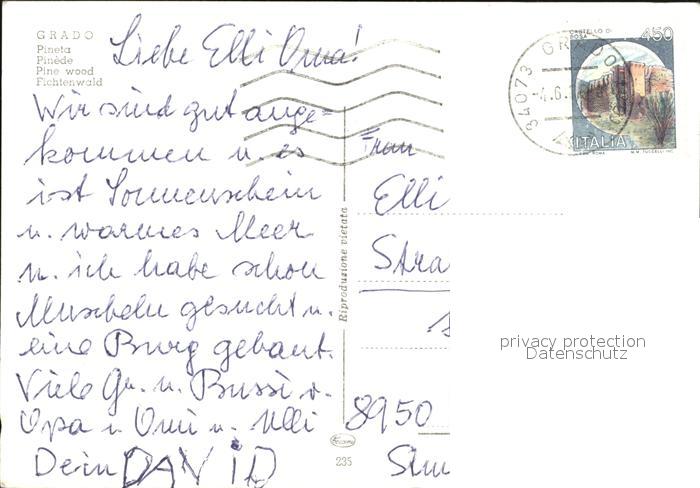 GRADO
Pineta
Pinède
Pine wood
Fichtenwald
Liebe Elli Oma!
Wir sind gut ange=
kommen u. es
ist Sonnenschein
u. warmes Meer
u. ich habe schon
Muscheln gesucht u.
eine Burg gebaut.
Viele Gr. u. Bussi v.
Opa u Omi u. Ulli
Dein DAVID
Riproduzione vietata
235
34073 GRADO
-4.6.
CASTELLO DI
ROSA
450
ITALIA
Frau
Elli
Stra
8950
privacy protection
Datenschutz